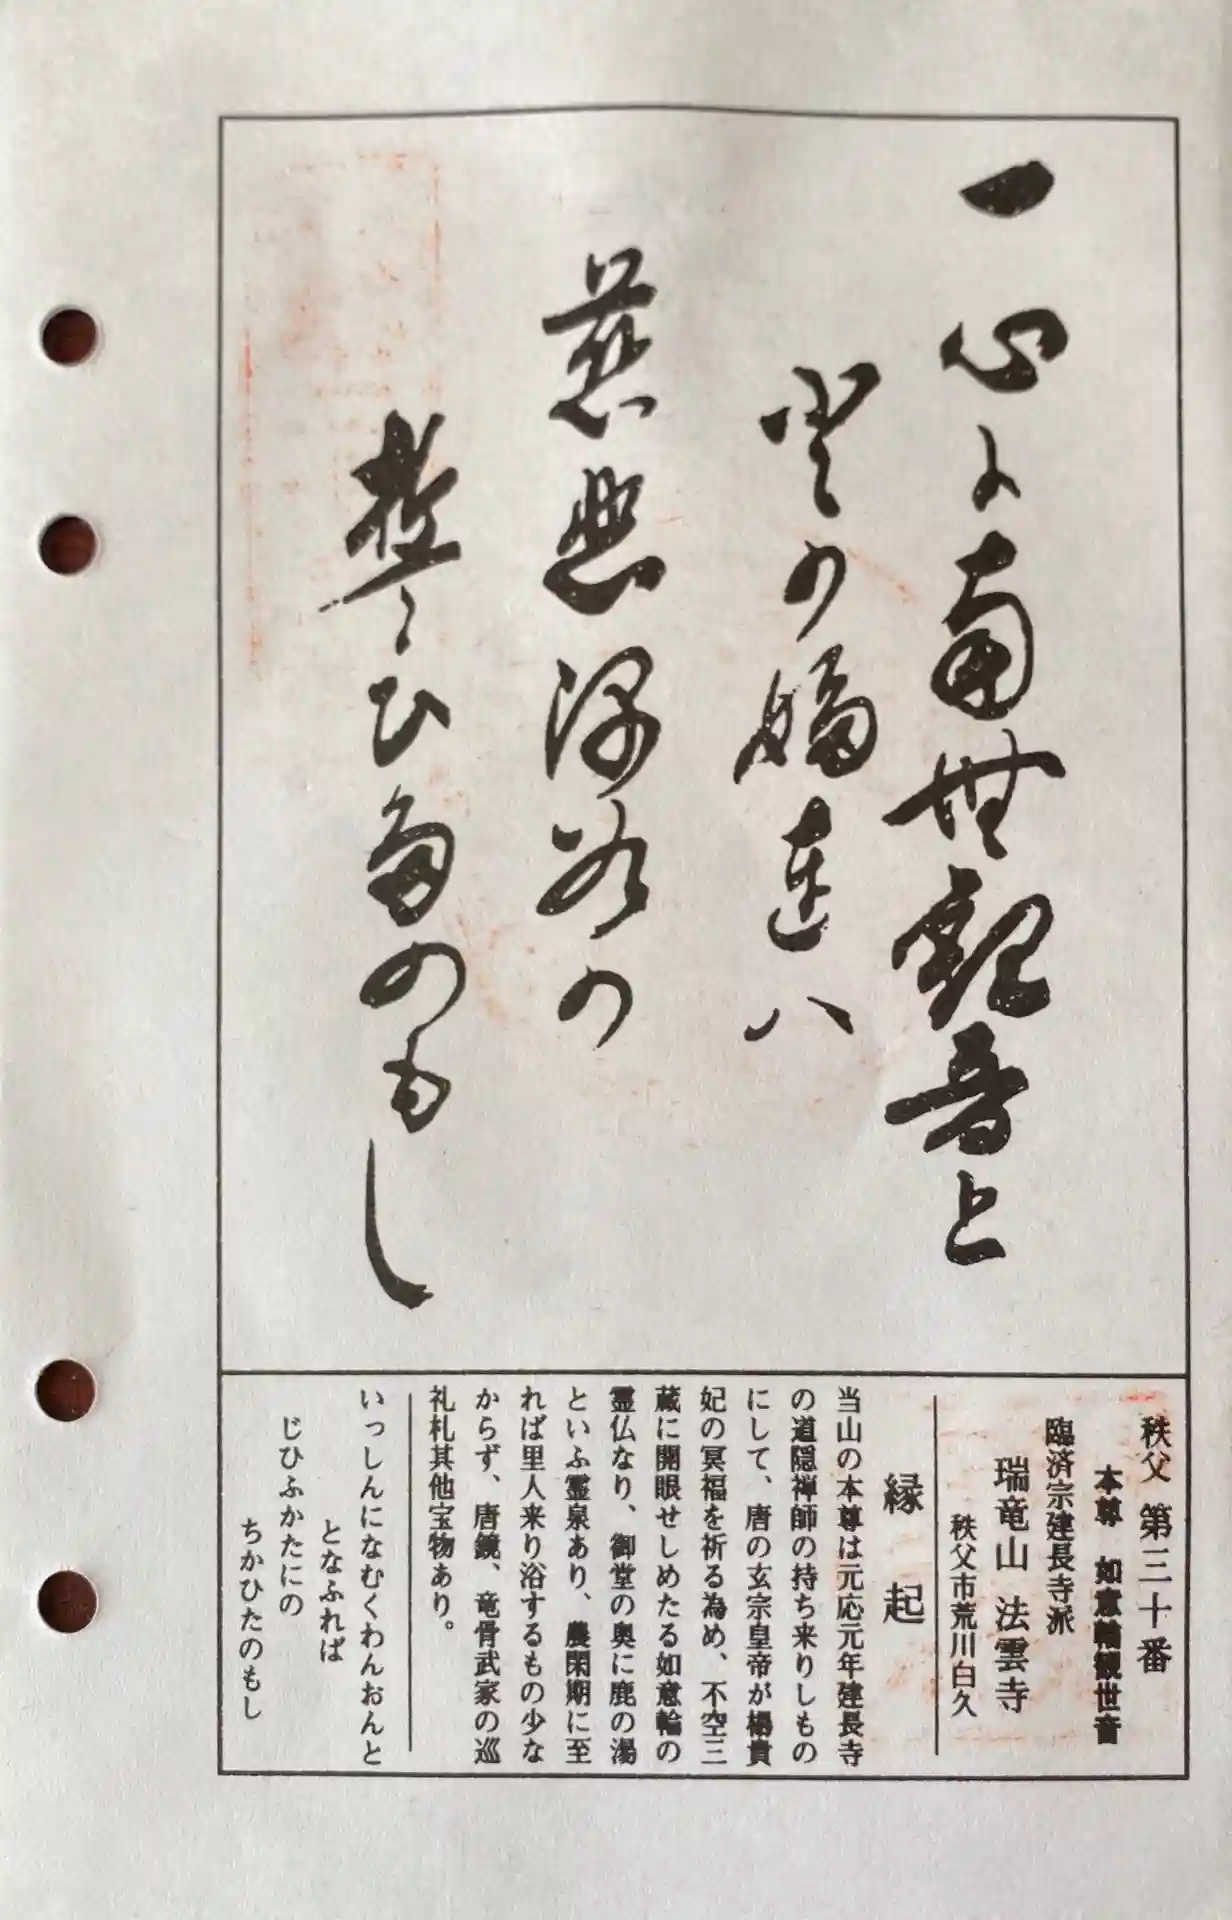 一心に南無観音と
登 婦連ハ
慈悲深谷の
誓ひ多のもし
秩父 第三十番
本尊 如意輪観世音
臨済宗建長寺派
瑞竜山 法雲寺
秩父市荒川白久
縁起
当山の本尊は元応元年建長寺
の道隠禅師の持ち来りしもの
にして、唐の玄宗皇帝が楊貴
妃の冥福を祈る為め、不空三
蔵に開眼せしめたる如意輪の
霊仏なり、御堂の奥に鹿の湯
といふ霊泉あり、農閑期に至
れば里人来り浴するもの少な
からず、唐鏡、竜骨武家の巡
礼札其他宝物あり。
いっしんになむくわんおんと
となふれば
じひふかたにの
ちかひたのもし